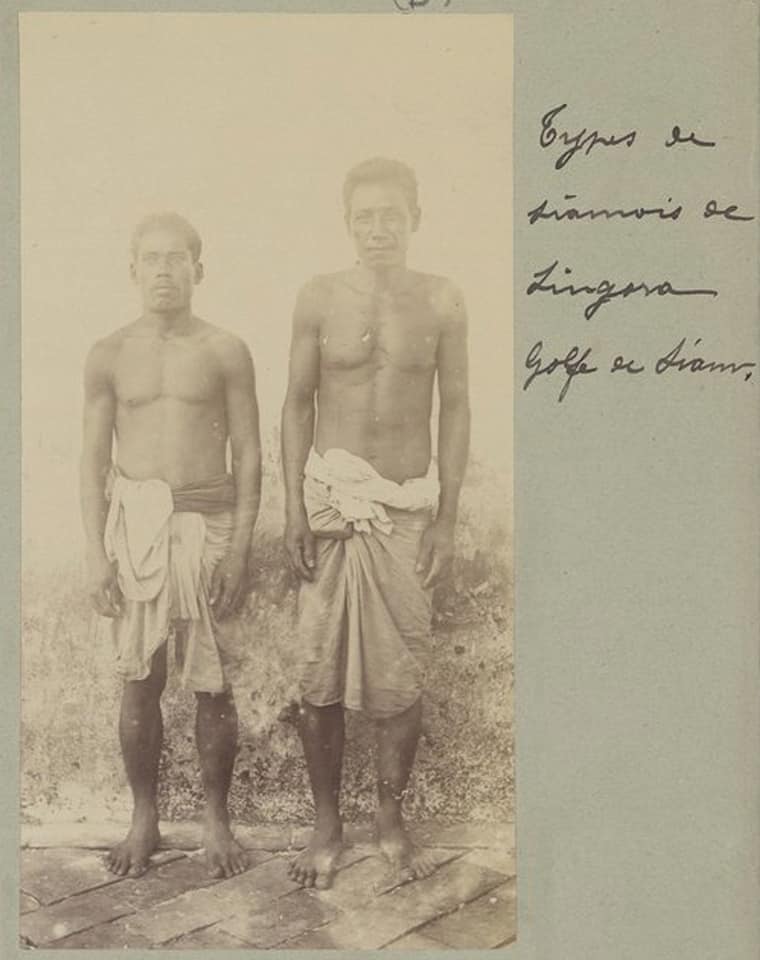 Types de
siamois de
Singora
Golfe de Siam.